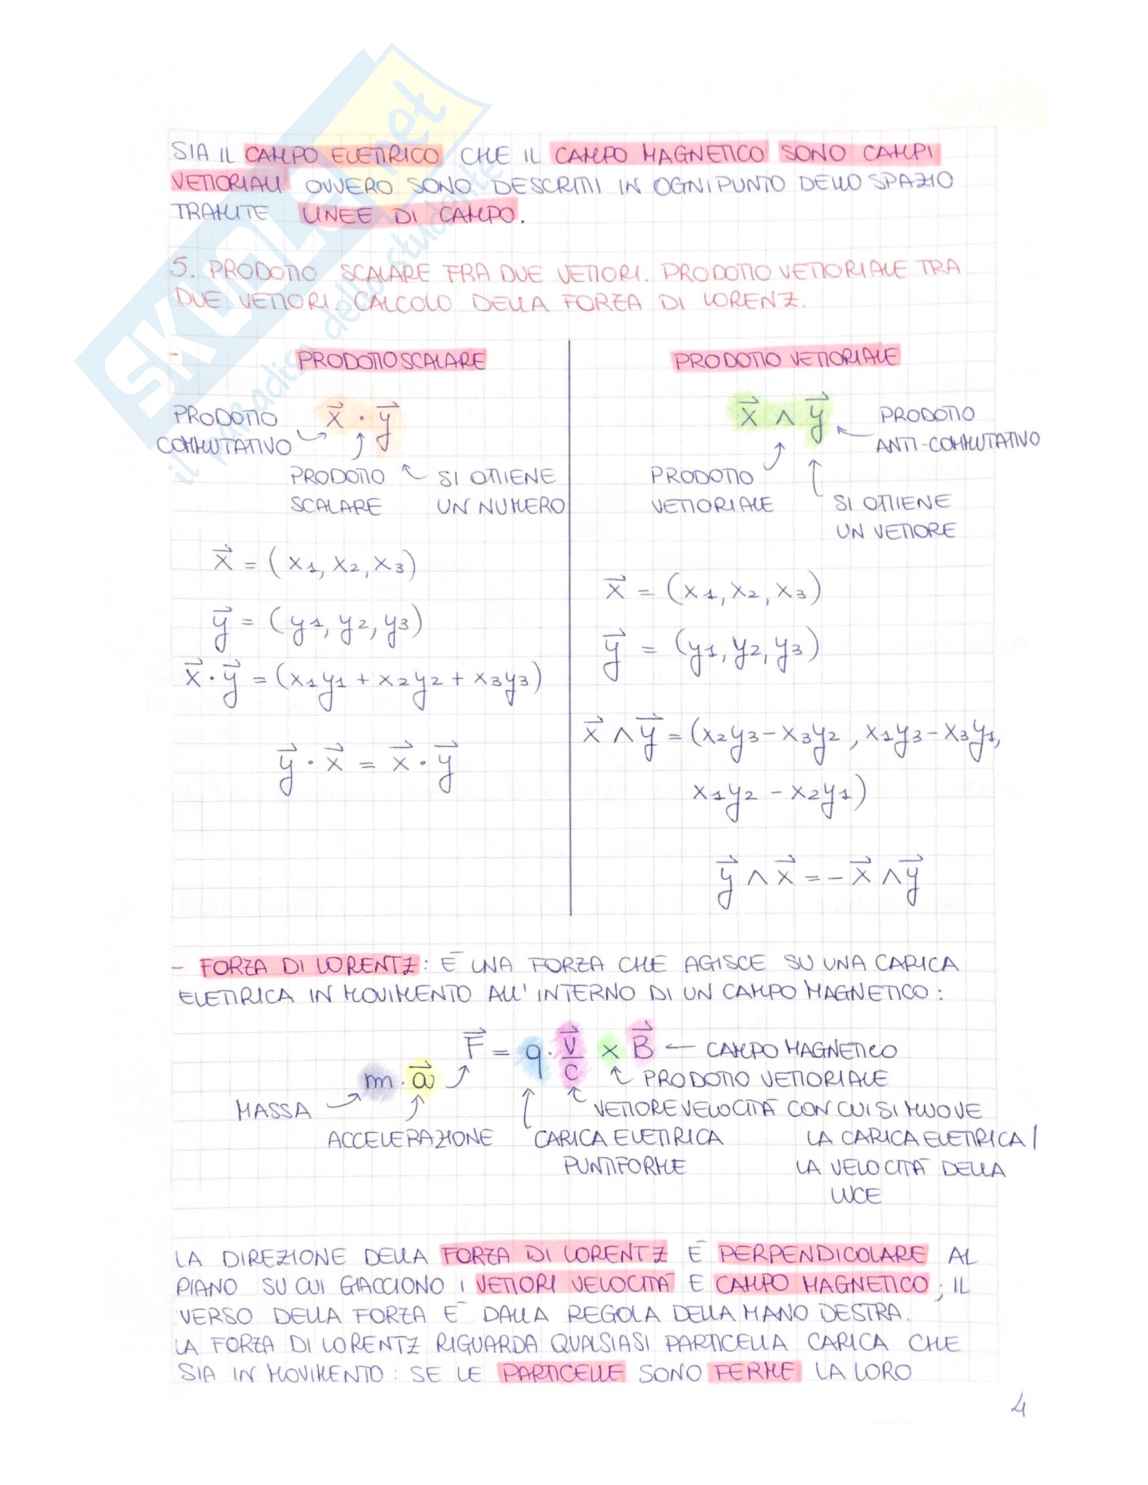 SIA IL CAMPO ELETTRICO CHE IL CAMPO MAGNETICO SONO CAMPI
VETTORIALI OVVERO SONO DESCRITTI IN OGNI PUNTO DELLO SPAZIO
TRAMITE LINEE DI CAMPO.
5. PRODOTTO SCALARE FRA DUE VETTORI. PRODOTTO VETTORIALE TRA
DUE VETTORI. CALCOLO DELLA FORZA DI LORENZ.
- PRODOTTO SCALARE
x⃗ · y⃗
PRODOTTO
COMMUTATIVO
PRODOTTO
SCALARE
SI OTTIENE
UN NUMERO
x⃗ = (x1, x2, x3)
y⃗ = (y1, y2, y3)
x⃗ · y⃗ = (x1y1 + x2y2 + x3y3)
y⃗ · x⃗ = x⃗ · y⃗
PRODOTTO VETTORIALE
x⃗ ∧ y⃗
PRODOTTO
ANTI-COMMUTATIVO
PRODOTTO
VETTORIALE
SI OTTIENE
UN VETTORE
x⃗ = (x1, x2, x3)
y⃗ = (y1, y2, y3)
x⃗ ∧ y⃗ = (x2y3 - x3y2, x1y3 - x3y1,
x1y2 - x2y1)
y⃗ ∧ x⃗ = - x⃗ ∧ y⃗
- FORZA DI LORENTZ: È UNA FORZA CHE AGISCE SU UNA CARICA
ELETTRICA IN MOVIMENTO ALL'INTERNO DI UN CAMPO MAGNETICO:
F⃗ = q · v⃗/c × B⃗ — CAMPO MAGNETICO
m · a⃗
PRODOTTO VETTORIALE
MASSA
ACCELERAZIONE
CARICA ELETTRICA
PUNTIFORME
VETTORE VELOCITÀ CON CUI SI MUOVE
LA CARICA ELETTRICA /
LA VELOCITÀ DELLA
LUCE
LA DIREZIONE DELLA FORZA DI LORENTZ È PERPENDICOLARE AL
PIANO SU CUI GIACCIONO I VETTORI VELOCITÀ E CAMPO MAGNETICO; IL
VERSO DELLA FORZA È DALLA REGOLA DELLA MANO DESTRA.
LA FORZA DI LORENTZ RIGUARDA QUALSIASI PARTICELLA CARICA CHE
SIA IN MOVIMENTO: SE LE PARTICELLE SONO FERME LA LORO
4
SKUOLA.net
il paradiso dello studente